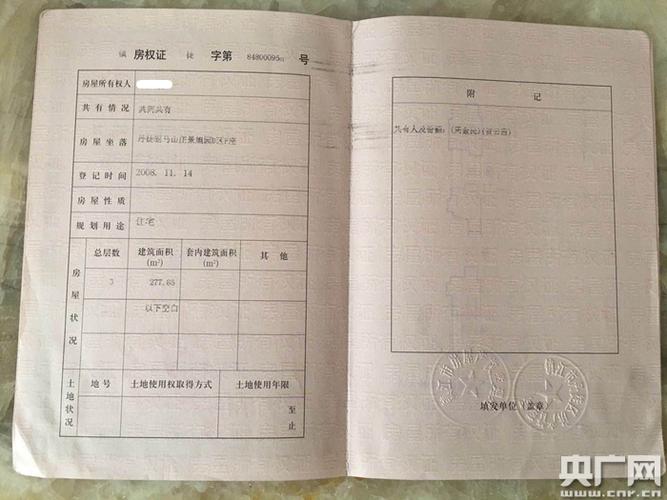 镇 房权证 徒 字第 84800095 号
房屋所有权人
共有情况 共同共有
房屋坐落
登记时间 2008.11.14
房屋性质
规划用途 住宅
房屋状况
总层数 建筑面积(m²) 套内建筑面积(m²) 其他
3 277.85
以下空白
土地状况
地号 土地使用权取得方式 土地使用年限
至
止
附记
共有人及份额:
填发单位(盖章)
央广网
www.cnr.cn